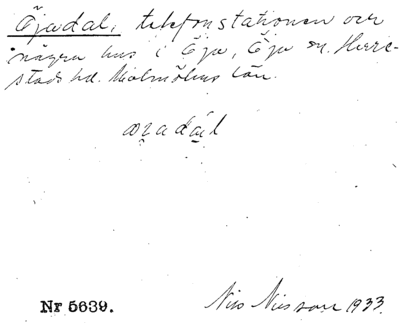 Öjadal, telefonstationen och
några hus i Öja, Öja sn. Herre-
stads hd. Malmöhus län.
Nr 5639.
Nils Nilsson 1933.